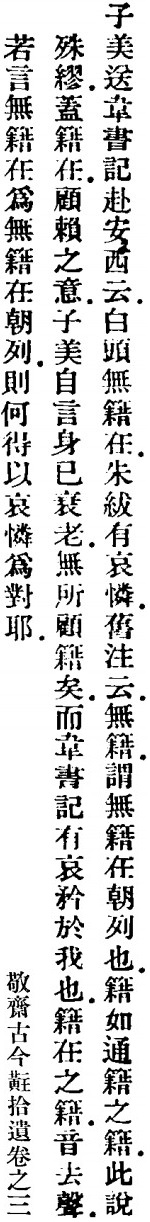 子美送韋書記赴安西云白頭無籍在朱紱有哀憐舊注云無籍謂無籍在朝列也籍如通籍之籍此說
殊繆蓋籍在顧賴之意子美自言身已衰老無所顧籍矣而韋書記有哀矜於我也籍在之籍音去聲
若言無籍在為無籍在朝列則何得以哀憐為對耶
敬齋古今黈拾遺卷之三